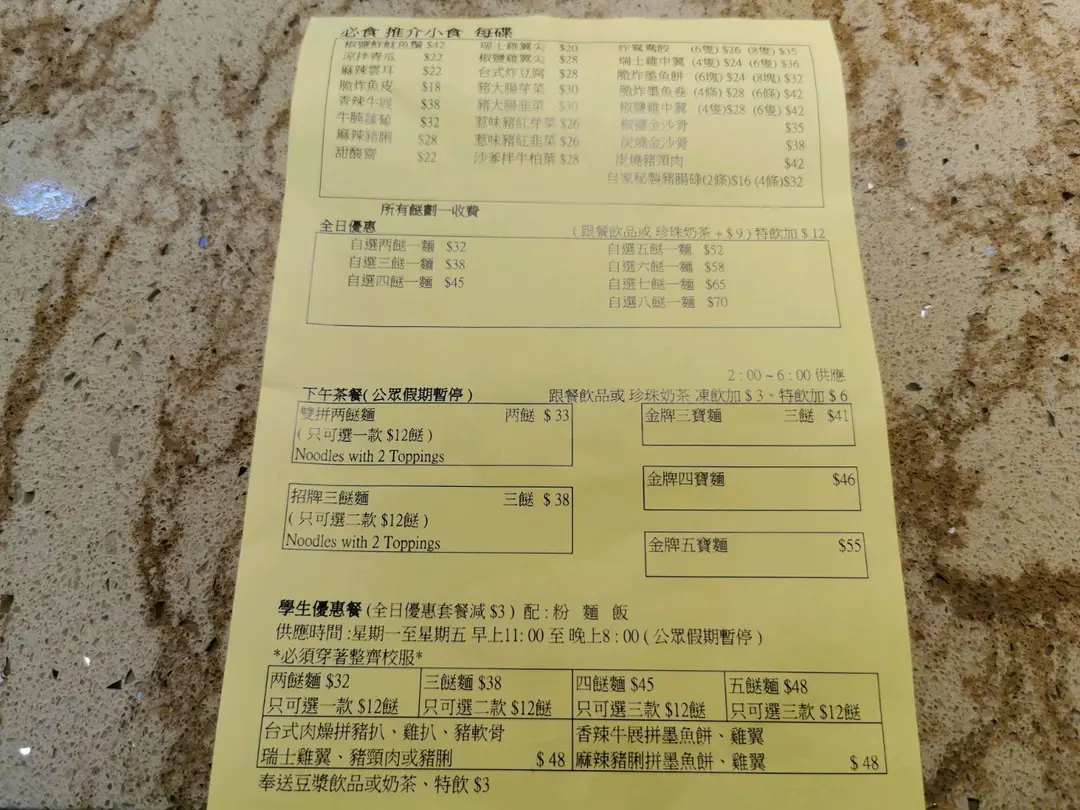 必食 推介小食 每碟
椒鹽鮮魷魚鬚 $42
涼拌青瓜 $22
麻辣雲耳 $22
脆炸魚皮 $18
香辣牛展 $38
牛腩蘿蔔 $32
麻辣豬脷 $28
甜酸齋 $22
瑞士雞翼尖 $20
椒鹽雞翼尖 $28
台式炸豆腐 $28
豬大腸芽菜 $30
豬大腸韭菜 $30
惹味豬紅芽菜 $26
惹味豬紅韭菜 $26
沙爹拌牛柏葉 $28
炸鴛鴦餃 (6隻) $26 (8隻) $35
瑞士雞中翼 (4隻) $24 (6隻) $36
脆炸墨魚餅 (6塊) $24 (8塊) $32
脆炸墨魚卷 (4條) $28 (6條) $42
椒鹽雞中翼 (4隻)$28 (6隻) $42
椒鹽金沙骨 $35
炭燒金沙骨 $38
炭燒豬頸肉 $42
自家秘製豬腸碌(2條)$16 (4條)$32
所有餸劃一收費
全日優惠 (跟餐飲品或 珍珠奶茶 + $ 9 ) 特飲加 $ 12
自選两餸一麵 $32
自選三餸一麵 $38
自選四餸一麵 $45
自選五餸一麵 $52
自選六餸一麵 $58
自選七餸一麵 $65
自選八餸一麵 $70
2 : 00 ~ 6 : 00 供應
下午茶餐( 公眾假期暫停 ) 跟餐飲品或 珍珠奶茶 凍飲加 $ 3 、特飲加 $ 6
雙拼两餸麵 两餸 $ 33
( 只可選一款 $12餸 )
Noodles with 2 Toppings
招牌三餸麵 三餸 $ 38
( 只可選二款 $12餸 )
Noodles with 2 Toppings
金牌三寶麵 三餸 $41
金牌四寶麵 $46
金牌五寶麵 $55
學生優惠餐 (全日優惠套餐減 $3 ) 配 : 粉 麵 飯
供應時間 :星期一至星期五 早上11: 00 至 晚上8 : 00 ( 公眾假期暫停 )
*必須穿著整齊校服*
两餸麵 $32
只可選一款 $12餸
三餸麵 $38
只可選二款 $12餸
四餸麵 $45
只可選三款 $12餸
五餸麵 $48
只可選三款 $12餸
台式肉燥拼豬扒、雞扒、豬軟骨
瑞士雞翼、豬頸肉或豬脷 $ 48
香辣牛展拼墨魚餅、雞翼
麻辣豬脷拼墨魚餅、雞翼 $ 48
奉送豆漿飲品或奶茶、特飲 $3